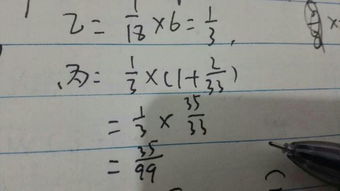 乙= 1/18 ×6= 1/3
丙= 1/3 ×(1+ 2/33)
= 1/3 × 35/33
= 35/99